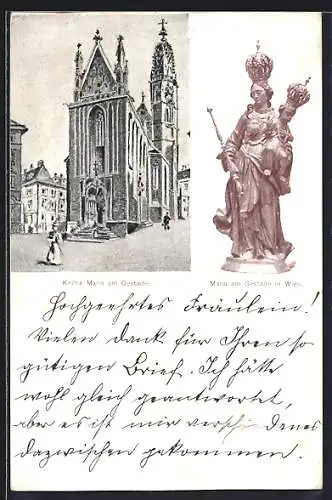 Kirche Maria am Gestade.
Maria am Gestade in Wien.
Hochgeehrtes Fräulein!
Vielen dank für Ihren so
gütigen Brief. Ich hätte
wohl gleich geantwortet,
aber es ist mir verschiedenes
dazwischen gekommen.